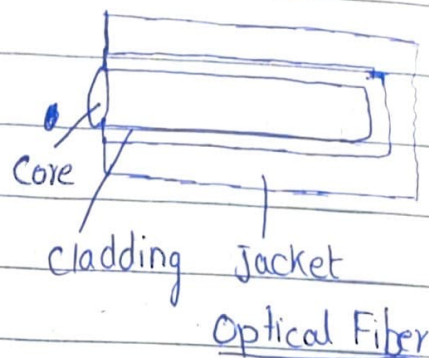 Core
cladding jacket
Optical Fiber